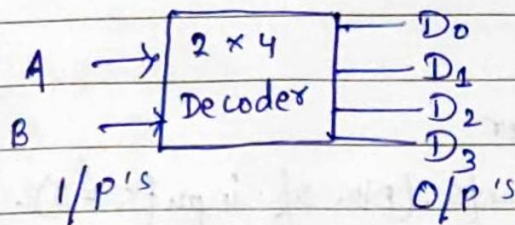 A
B
I/P's
2 × 4
Decoder
D0
D1
D2
D3
O/P's